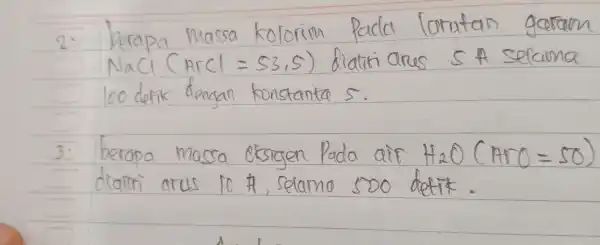 2. berapa massa kolorim Pada laratan garam
NaCl (ArCl = 53,5) dialiri arus 5 A selama
100 detik dengan konstanta 5.
3. berapa massa oksigen Pada air H2O (ArO = 50)
dialiri arus 10 A, selama 500 detik.